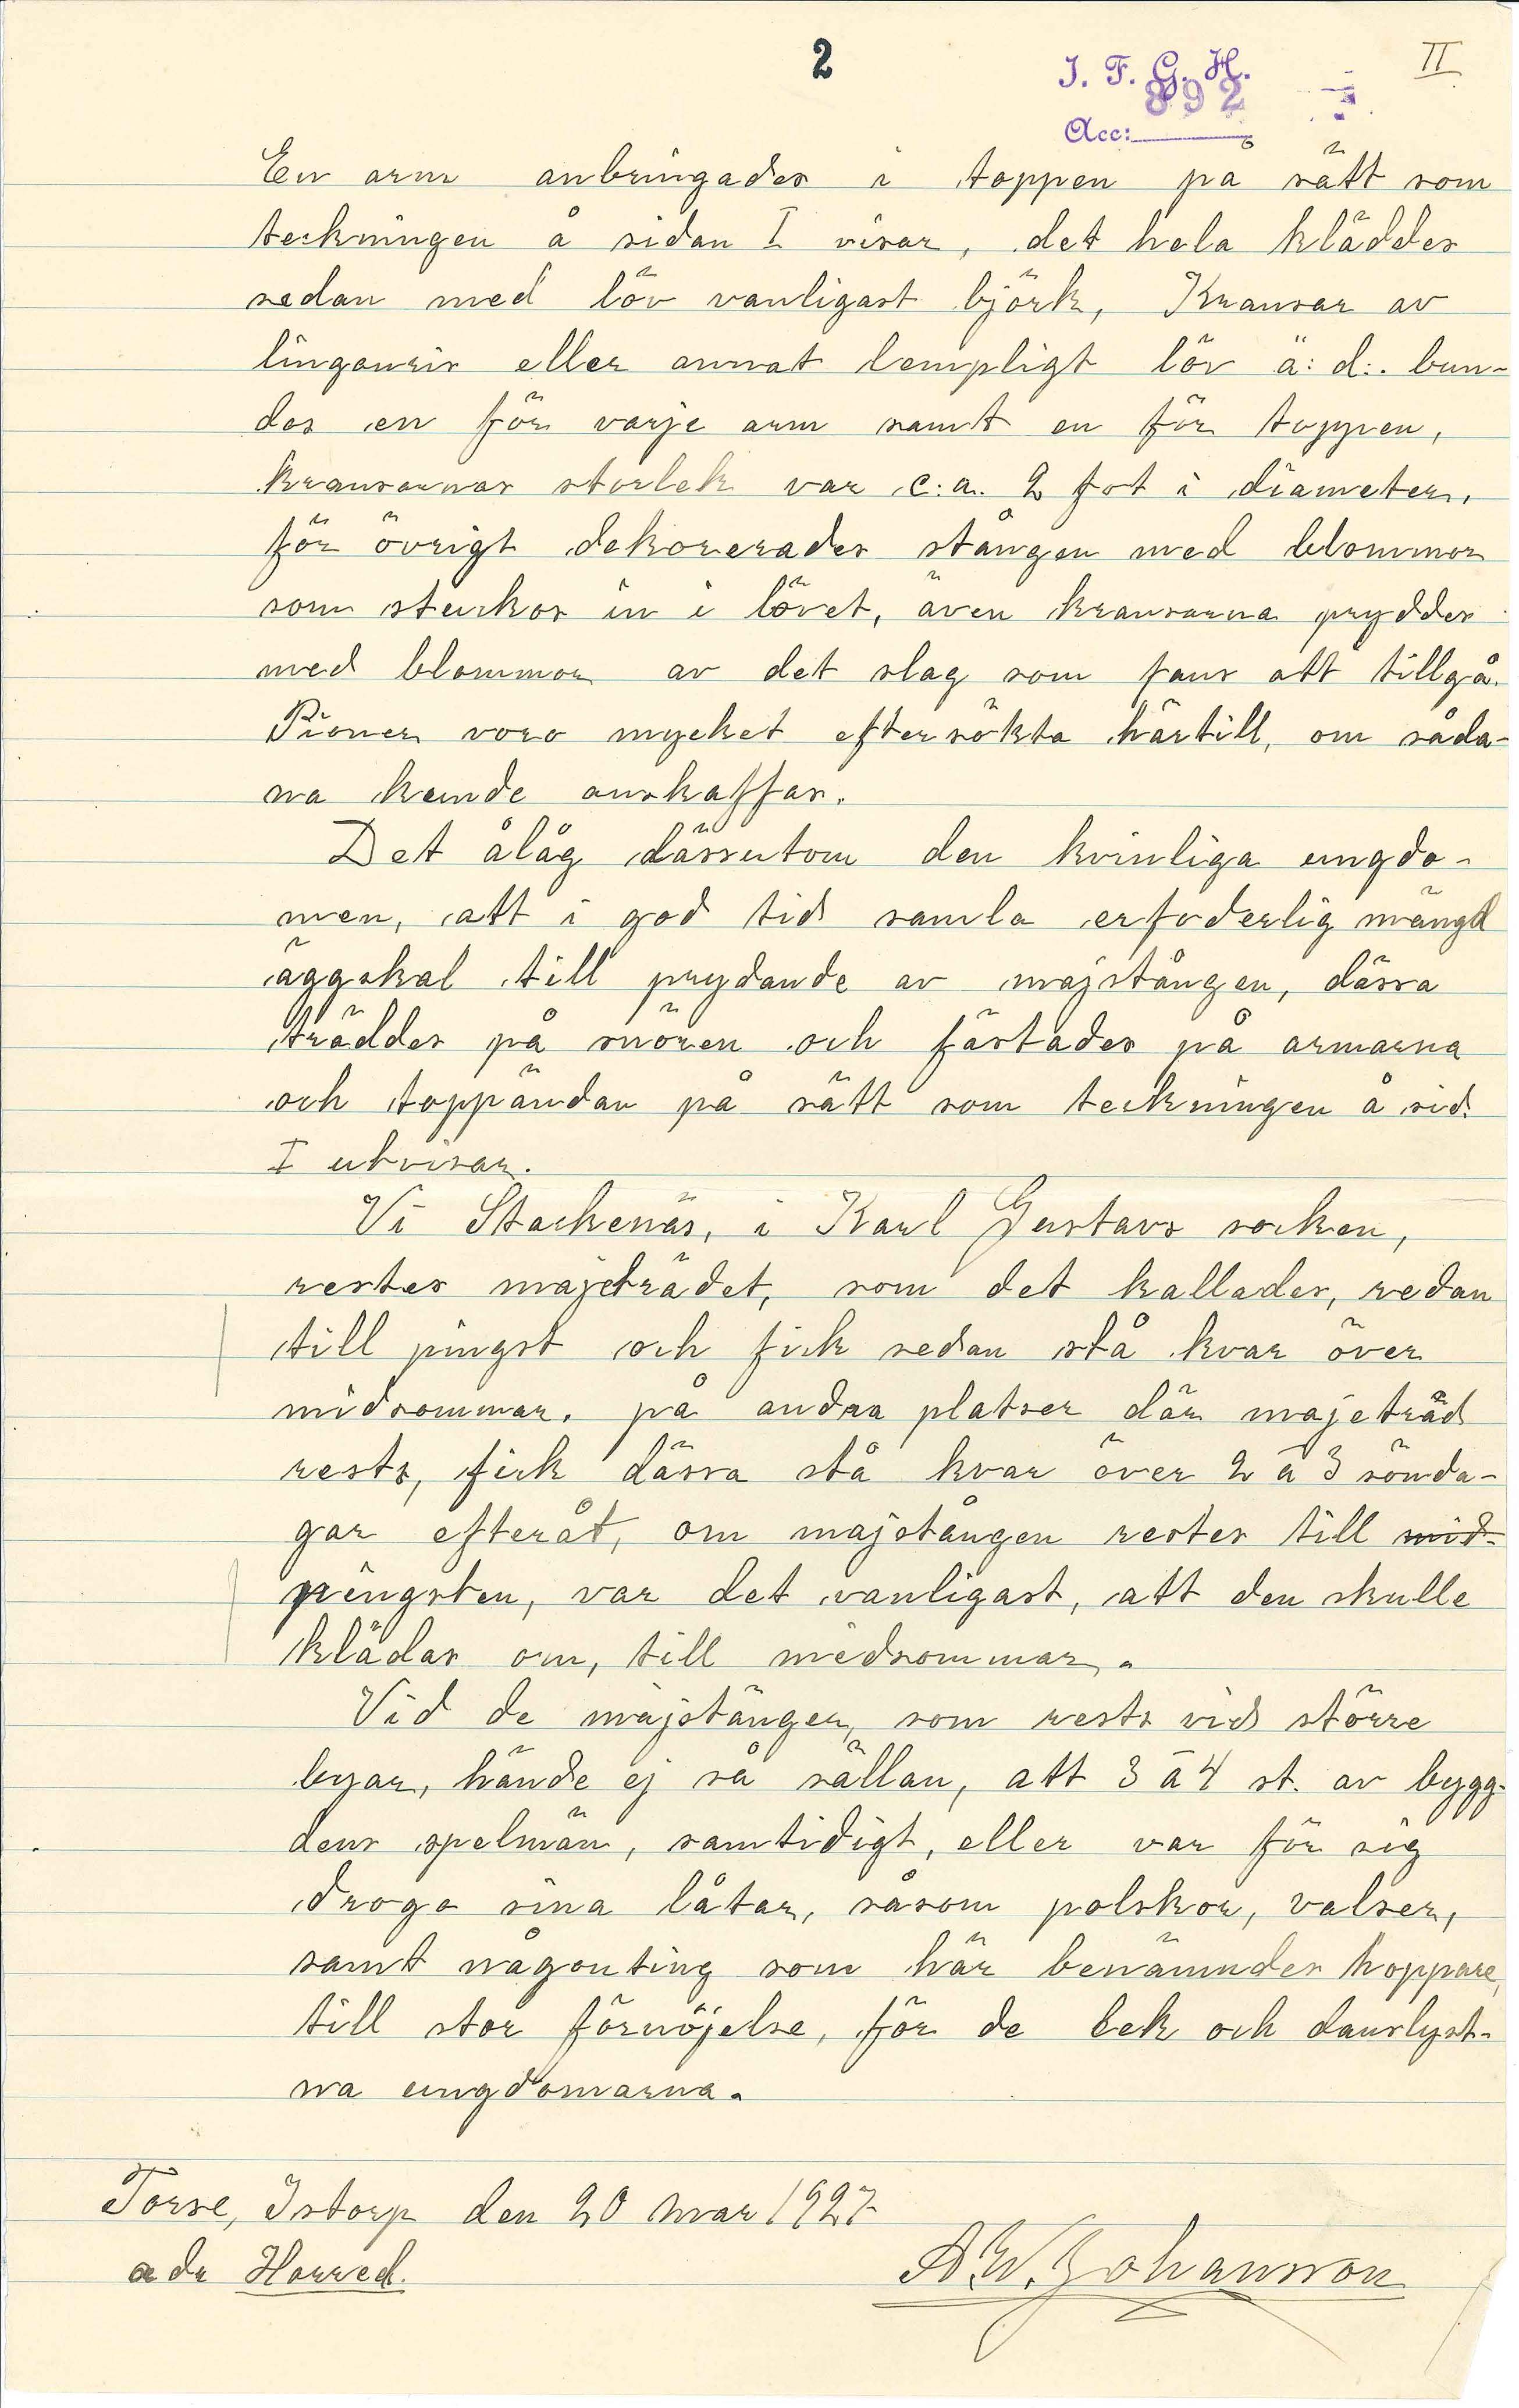 2
II
I. F. G. H.
892
Acc:
En arm anbringades i toppen på sätt som
teckningen å sidan I visar, det hela kläddes
sedan med löv vanligast björk, Kransar av
lingonris eller annat lempligt löv ä: d:. bun-
dos en för varje arm samt en för toppen,
kransarnas storlek var c:a. 2 fot i diameter,
för övrigt dekorerades stången med blommor
som stuckos in i lövet, även kransarna pryddes
med blommor av det slag som fans att tillgå.
Pioner voro mycket eftersökta härtill, om såda-
na kunde anskaffas.
Det ålåg dässutom den kvinliga ungdo-
men, att i god tid samla erfoderlig mängd
äggskal till prydande av majstången, dässa
träddes på snören och fästades på armarna
och toppändan på sätt som teckningen å sid.
I utvisar.
Vi Stackenäs, i Karl Gustavs socken,
restes majeträdet, som det kallades, redan
till pingst och fick sedan stå kvar över
midsommar. på andra platser där majeträd
rests, fick dässa stå kvar över 2 à 3 sönda-
gar efteråt, om majstången restes till mid-
pingsten, var det vanligast, att den skulle
klädas om, till midsommar.
Vid de majstänger, som rests vid större
byar, hände ej så sällan, att 3 à 4 st. av bygg-
dens spelmän, samtidigt, eller var för sig
drogo sina låtar, såsom polskor, valser,
samt någonting som här benämndes hoppare,
till stor förnöjelse, för de lek och danslyst-
na ungdomarna.
Torse, Istorp den 20 mar 1927
adr Horred.
A.W. Johansson